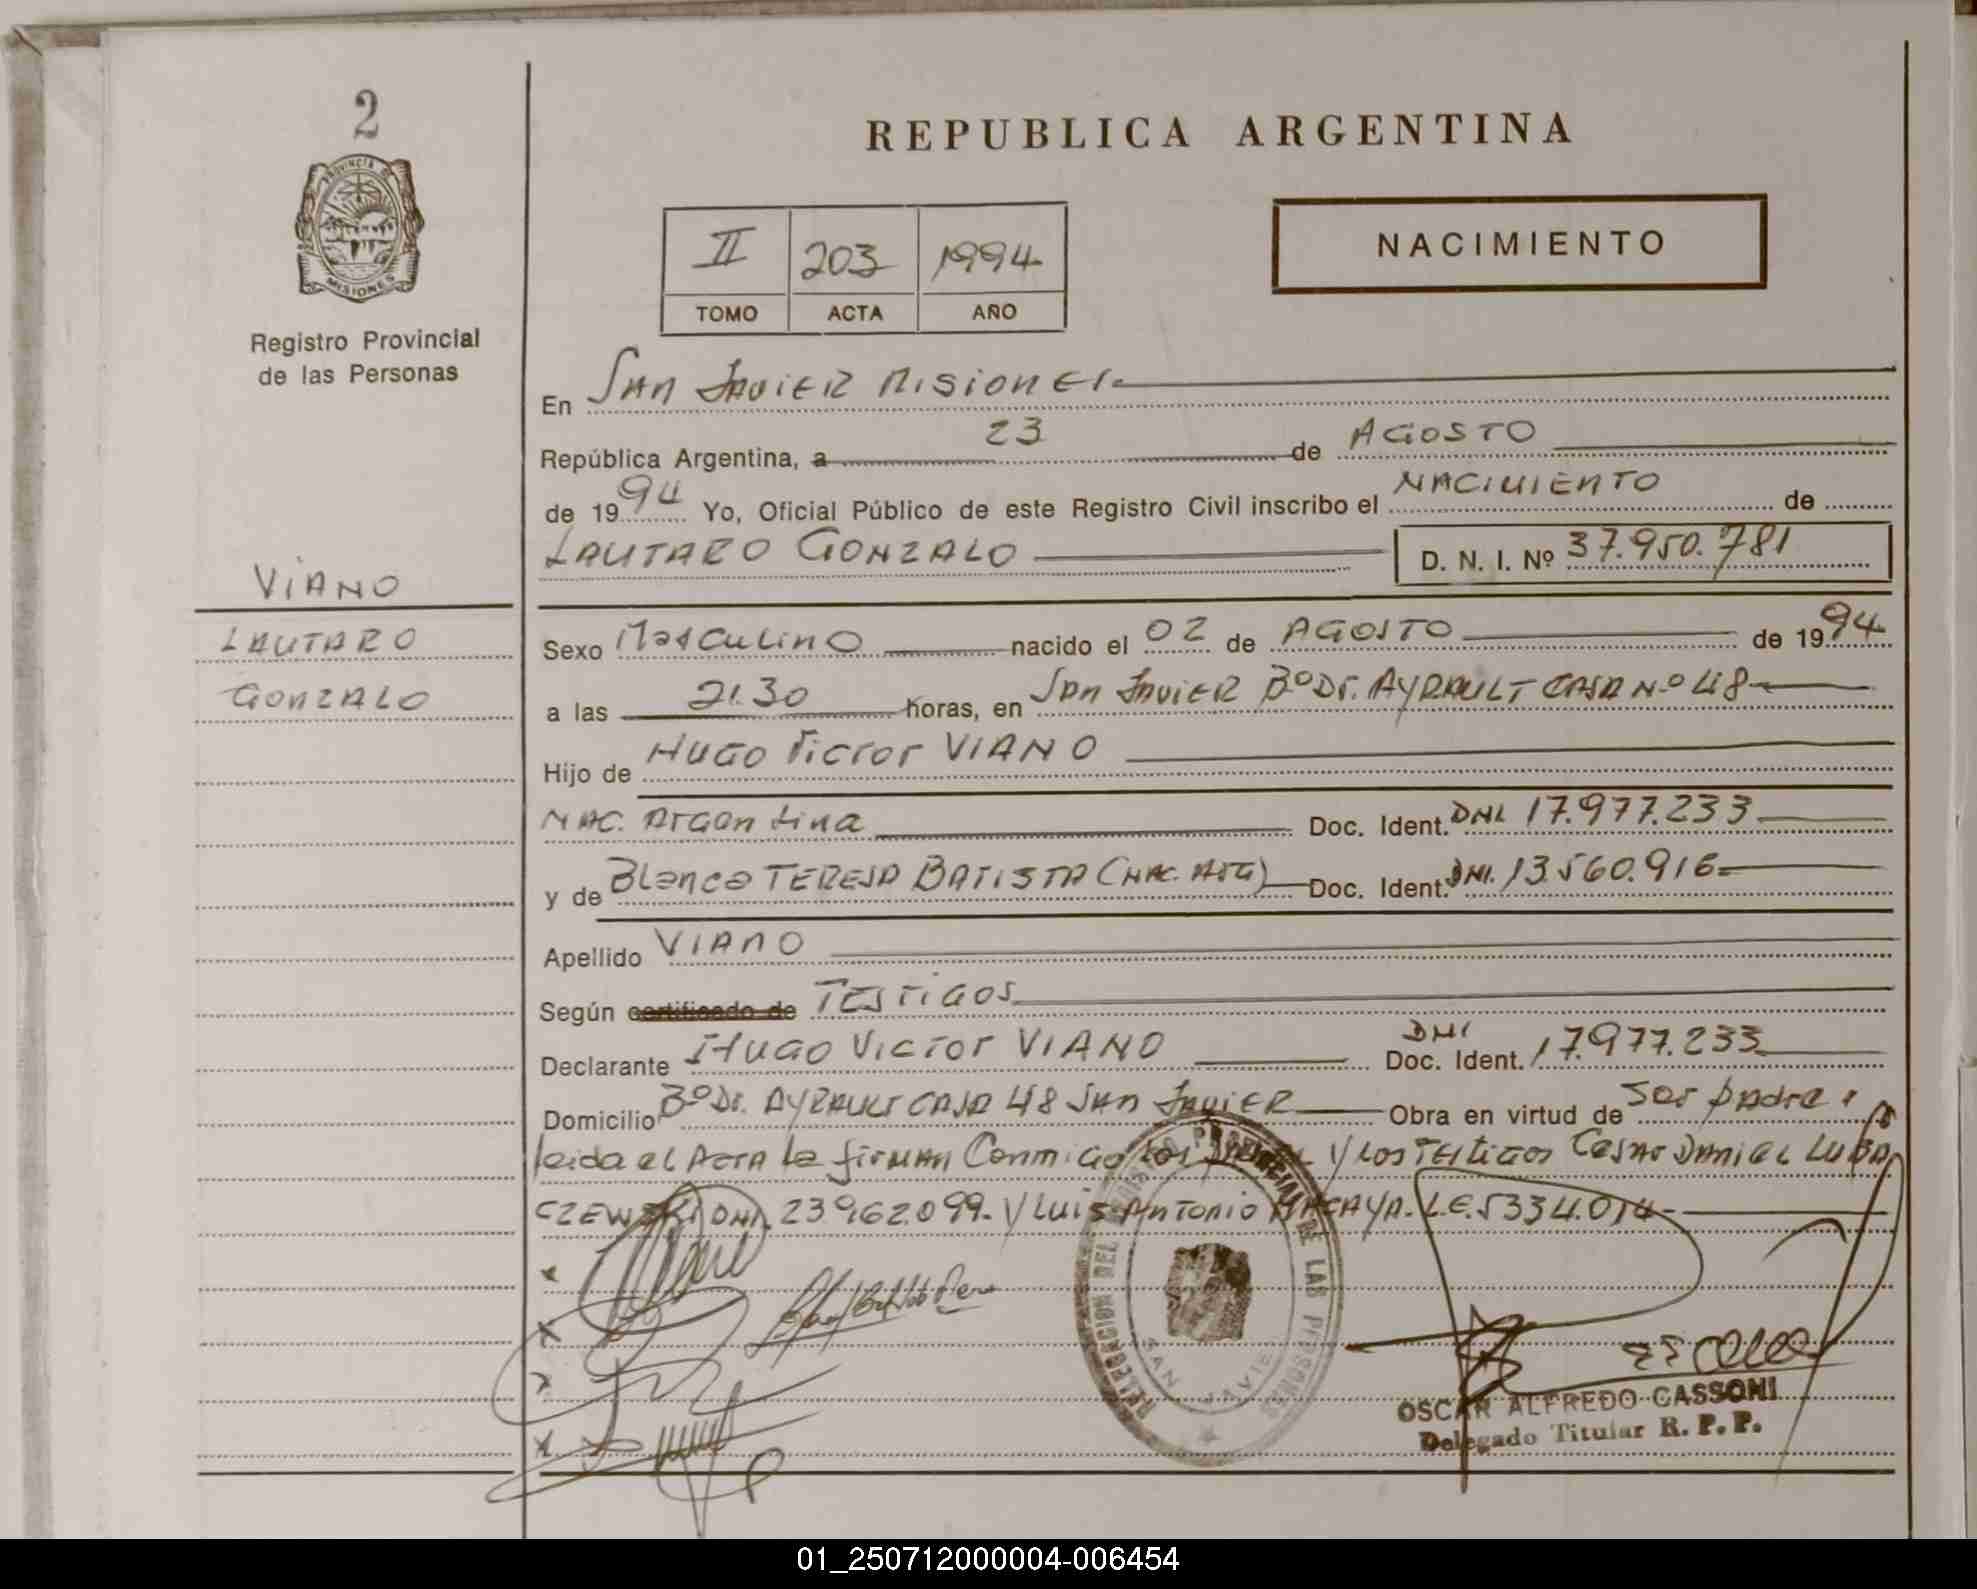 2
PROVINCIA DE
MISIONES
Registro Provincial
de las Personas
VIANO
LAUTARO
GONZALO
REPUBLICA ARGENTINA
II 203 1994
TOMO ACTA AÑO
NACIMIENTO
En SAN JAVIER MISIONES
República Argentina, a 23 de AGOSTO
de 1994 Yo, Oficial Público de este Registro Civil inscribo el NACIMIENTO de
LAUTARO GONZALO D. N. I. Nº 37.950.781
Sexo Masculino nacido el 02 de AGOSTO de 1994
a las 21.30 horas, en SAN JAVIER Bº Dr. AYRAULT CASA Nº 48
Hijo de HUGO Victor VIANO
NAC. Argentina Doc. Ident. DNI 17.977.233
y de Blanca TERESA BATISTA (NAC. ARG) Doc. Ident. DNI. 13.560.916
Apellido VIANO
Según certificado de TESTIGOS
Declarante HUGO VICTOR VIANO Doc. Ident. DNI 17.977.233
Domicilio Bº Dr. AYRAULT CASA 48 SAN JAVIER Obra en virtud de Ser padre
leida el ACTA la firman Conmigo los y los TESTIGOS CESAR DANIEL LUBA
CZEWSKI DNI. 23.962.099. y LUIS ANTONIO L.E. 5334.014
DELEGACION DEL REGISTRO PROVINCIAL DE LAS PERSONAS
SAN JAVIER
OSCAR ALFREDO CASSONI
Delegado Titular R. P. P.
01_250712000004-006454